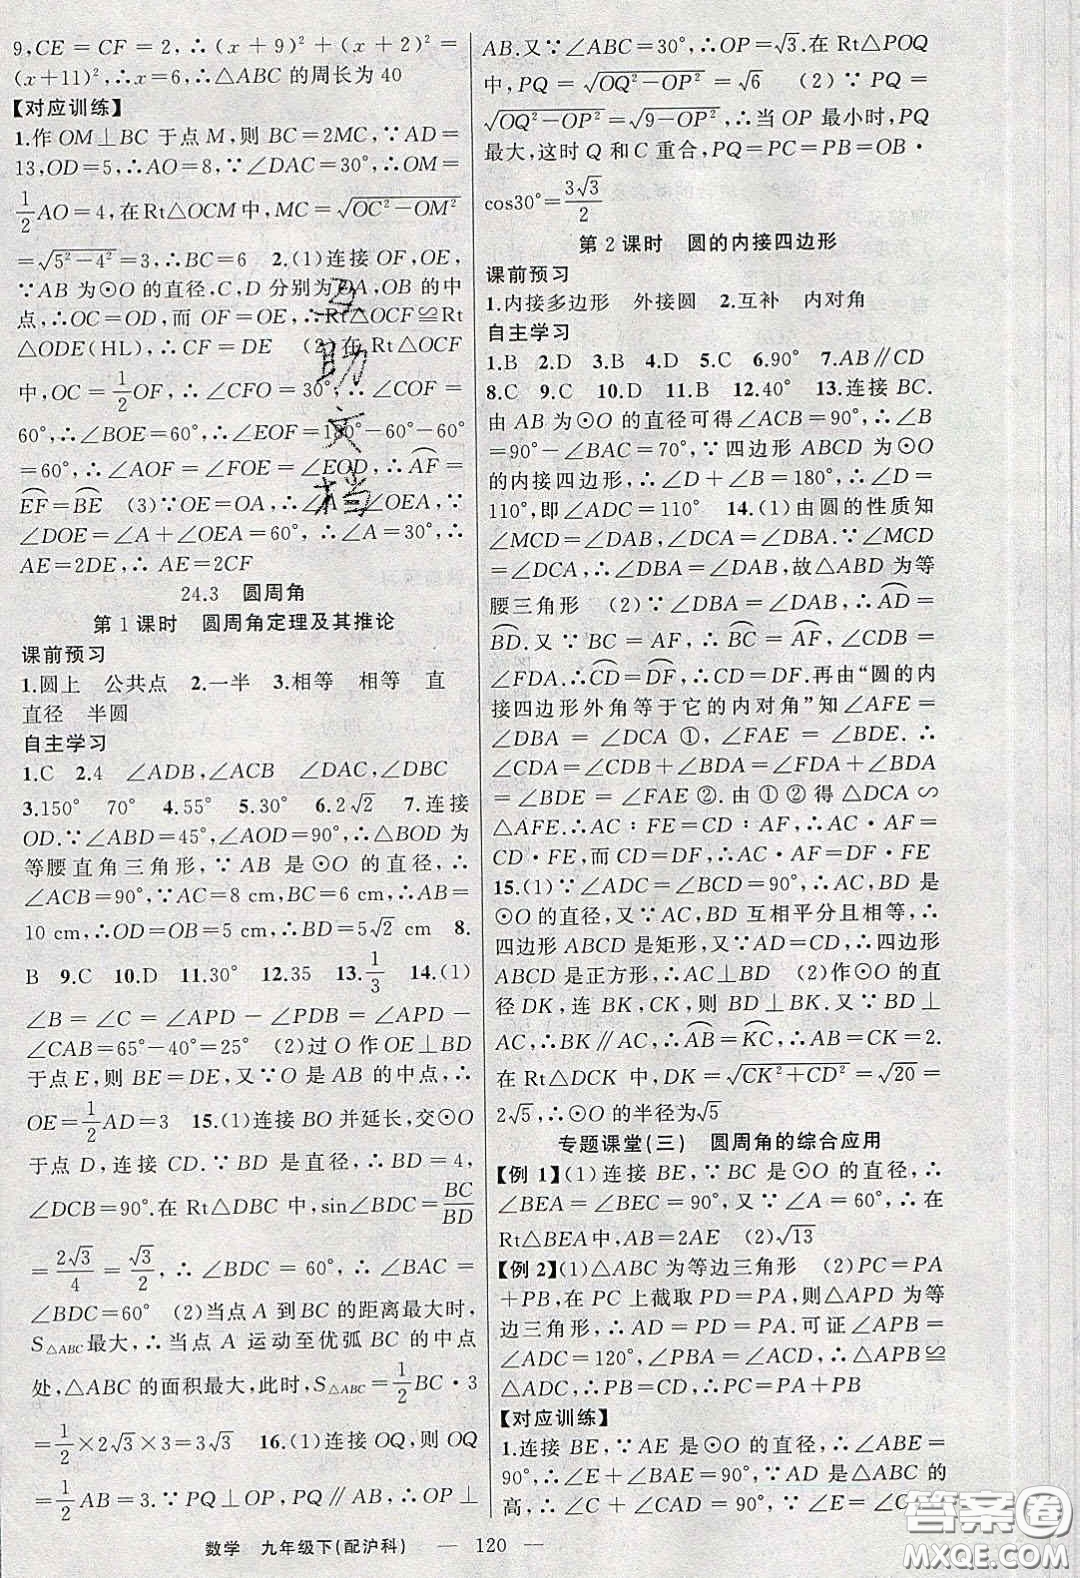 9,CE=CF=2,∴(x+9)²+(x+2)²=
(x+11)²,∴x=6,∴△ABC 的周长为 40
【对应训练】
1.作 OM⊥BC 于点 M,则 BC=2MC,∵AD=
13,OD=5,∴AO=8,∵∠DAC=30°,∴OM=
1/2AO=4,在Rt△OCM中,MC=√(OC²-OM²)
=√(5²-4²)=3,∴BC=6 2.(1)连接 OF,OE,
∵AB 为⊙O 的直径,C,D 分别为OA,OB 的中
点,∴OC=OD,而 OF=OE,∴Rt△OCF≌Rt
△ODE(HL),∴CF=DE (2)在 Rt△OCF
中,OC=1/2OF,∴∠CFO=30°,∴∠COF=
60°,∴∠BOE=60°,∴∠EOF=180°-60°-60°
=60°,∴∠AOF=∠FOE=∠EOD,∴⌒AF=
⌒EF=⌒BE (3)∵OE=OA,∴∠A=∠OEA,∵
∠DOE=∠A+∠OEA=60°,∴∠A=30°,∴
AE=2DE,∴AE=2CF
24.3 圆周角
第 1 课时 圆周角定理及其推论
课前预习
1.圆上 公共点 2.一半 3.相等 相等 直
直径 半圆
自主学习
1.C 2.4 ∠ADB,∠ACB ∠DAC,∠DBC
3.150° 70° 4.55° 5.30° 6.2√2 7.连接
OD.∵∠ABD=45°,∠AOD=90°,∴△BOD 为
等腰直角三角形,∵AB 是⊙O 的直径,∴
∠ACB=90°,∵AC=8 cm,BC=6 cm,∴AB=
10 cm,∴OD=OB=5 cm,∴BD=5√2 cm 8.
B 9.C 10.D 11.30° 12.35 13.1/3 14.(1)
∠B=∠C=∠APD-∠PDB=∠APD-
∠CAB=65°-40°=25° (2)过 O 作 OE⊥BD
于点 E,则 BE=DE,又∵O 是 AB 的中点,∴
OE=1/2AD=3 15.(1)连接 BO 并延长,交⊙O
于点 D,连接 CD.∵BD 是直径,∴BD=4,
∠DCB=90°.在 Rt△DBC 中,sin∠BDC=BC/BD
=2√3/4=√3/2,∴∠BDC=60°,∴∠BAC=
∠BDC=60° (2)当点 A 到BC 的距离最大时,
S△ABC最大,∴当点 A 运动至优弧 BC 的中点
处,△ABC 的面积最大,此时,S△ABC=1/2BC·3
=1/2×2√3×3=3√3 16.(1)连接 OQ,则 OQ
=1/2AB=3.∵PQ⊥OP,PQ∥AB,∴OP⊥
AB.又∵∠ABC=30°,∴OP=√3.在 Rt△POQ
中,PQ=√(OQ²-OP²)=√6 (2)∵PQ=
√(OQ²-OP²)=√(9-OP²),∴当 OP 最小时,PQ
最大,这时 Q 和 C 重合,PQ=PC=PB=OB·
cos30°=3√3/2
第 2 课时 圆的内接四边形
课前预习
1.内接多边形 外接圆 2.互补 内对角
自主学习
1.B 2.D 3.B 4.D 5.C 6.90° 7.AB∥CD
8.C 9.C 10.D 11.B 12.40° 13.连接 BC.
由 AB 为⊙O 的直径可得∠ACB=90°,∴∠B
=90°-∠BAC=70°,∵四边形 ABCD 为⊙O
的内接四边形,∴∠D+∠B=180°,∴∠D=
110°,即∠ADC=110° 14.(1)由圆的性质知
∠MCD=∠DAB,∠DCA=∠DBA.∵∠MCD
=∠DCA,∴∠DBA=∠DAB,故△DAB 为等
腰三角形 (2)∵∠DBA=∠DAB,∴⌒AD=
⌒BD.又∵BC=AF,∴⌒BC=⌒AF,∠CDB=
∠FDA.∴⌒CD=⌒DF,∴CD=DF.再由“圆的内
接四边形外角等于它的内对角”知∠AFE=
∠DBA=∠DCA ①,∠FAE=∠BDE.∴
∠CDA=∠CDB+∠BDA=∠FDA+∠BDA=
∠BDE=∠FAE ②.由 ① ② 得 △DCA∽
△AFE.∴AC∶FE=CD∶AF,∴AC·AF=
CD·FE,而CD=DF,∴AC·AF=DF·FE
15.(1)∵∠ADC=∠BCD=90°,∴AC,BD 是
⊙O 的直径,又∵AC,BD 互相平分且相等,∴
四边形 ABCD 是矩形,又∵AD=CD,∴四边形
ABCD 是正方形,∴AC⊥BD (2)作⊙O 的直
径 DK,连 BK,CK,则 BD⊥BK.又∵BD⊥
AC,∴BK∥AC,∴⌒AB=⌒KC,∴AB=CK=2.
在 Rt△DCK 中,DK=√(CK²+CD²)=√20=
2√5,∴⊙O的半径为√5
专题课堂(三) 圆周角的综合应用
【例 1】(1)连接 BE,∵BC 是⊙O 的直径,∴
∠BEA=∠BEC=90°,又∵∠A=60°,∴在
Rt△BEA中,AB=2AE (2)√13
【例 2】(1)△ABC 为等边三角形 (2)PC=PA
+PB,在 PC 上截取 PD=PA,则△APD 为等
边三角形,∴AD=PD=PA.可证∠APB=
∠ADC=120°,∠ABP=∠ACD,∴△APB≌
△ADC,∴PB=CD,∴PC=PA+PB
【对应训练】
1.连接 BE,∵AE 是⊙O 的直径,∴∠ABE=
90°,∴∠E+∠BAE=90°,∵AD 是△ABC 的
高,∴∠C+∠CAD=90°,∵∠E=∠C,
数学 九年级下(配沪科) — 120 —
互助文档
答案圈
MXQE.COM